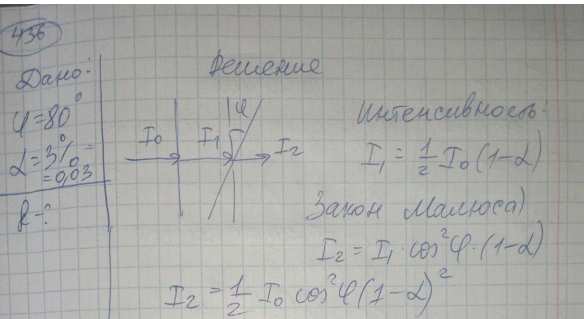 436
Дано:
φ=80°
α=3%=
=0,03
k-?
Решение
I₀ I₁ φ I₂
Интенсивность:
I₁ = 1/2 I₀ (1-α)
Закон Малюса)
I₂ = I₁·cos²φ·(1-α)
I₂ = 1/2 I₀ cos²φ (1-α)²